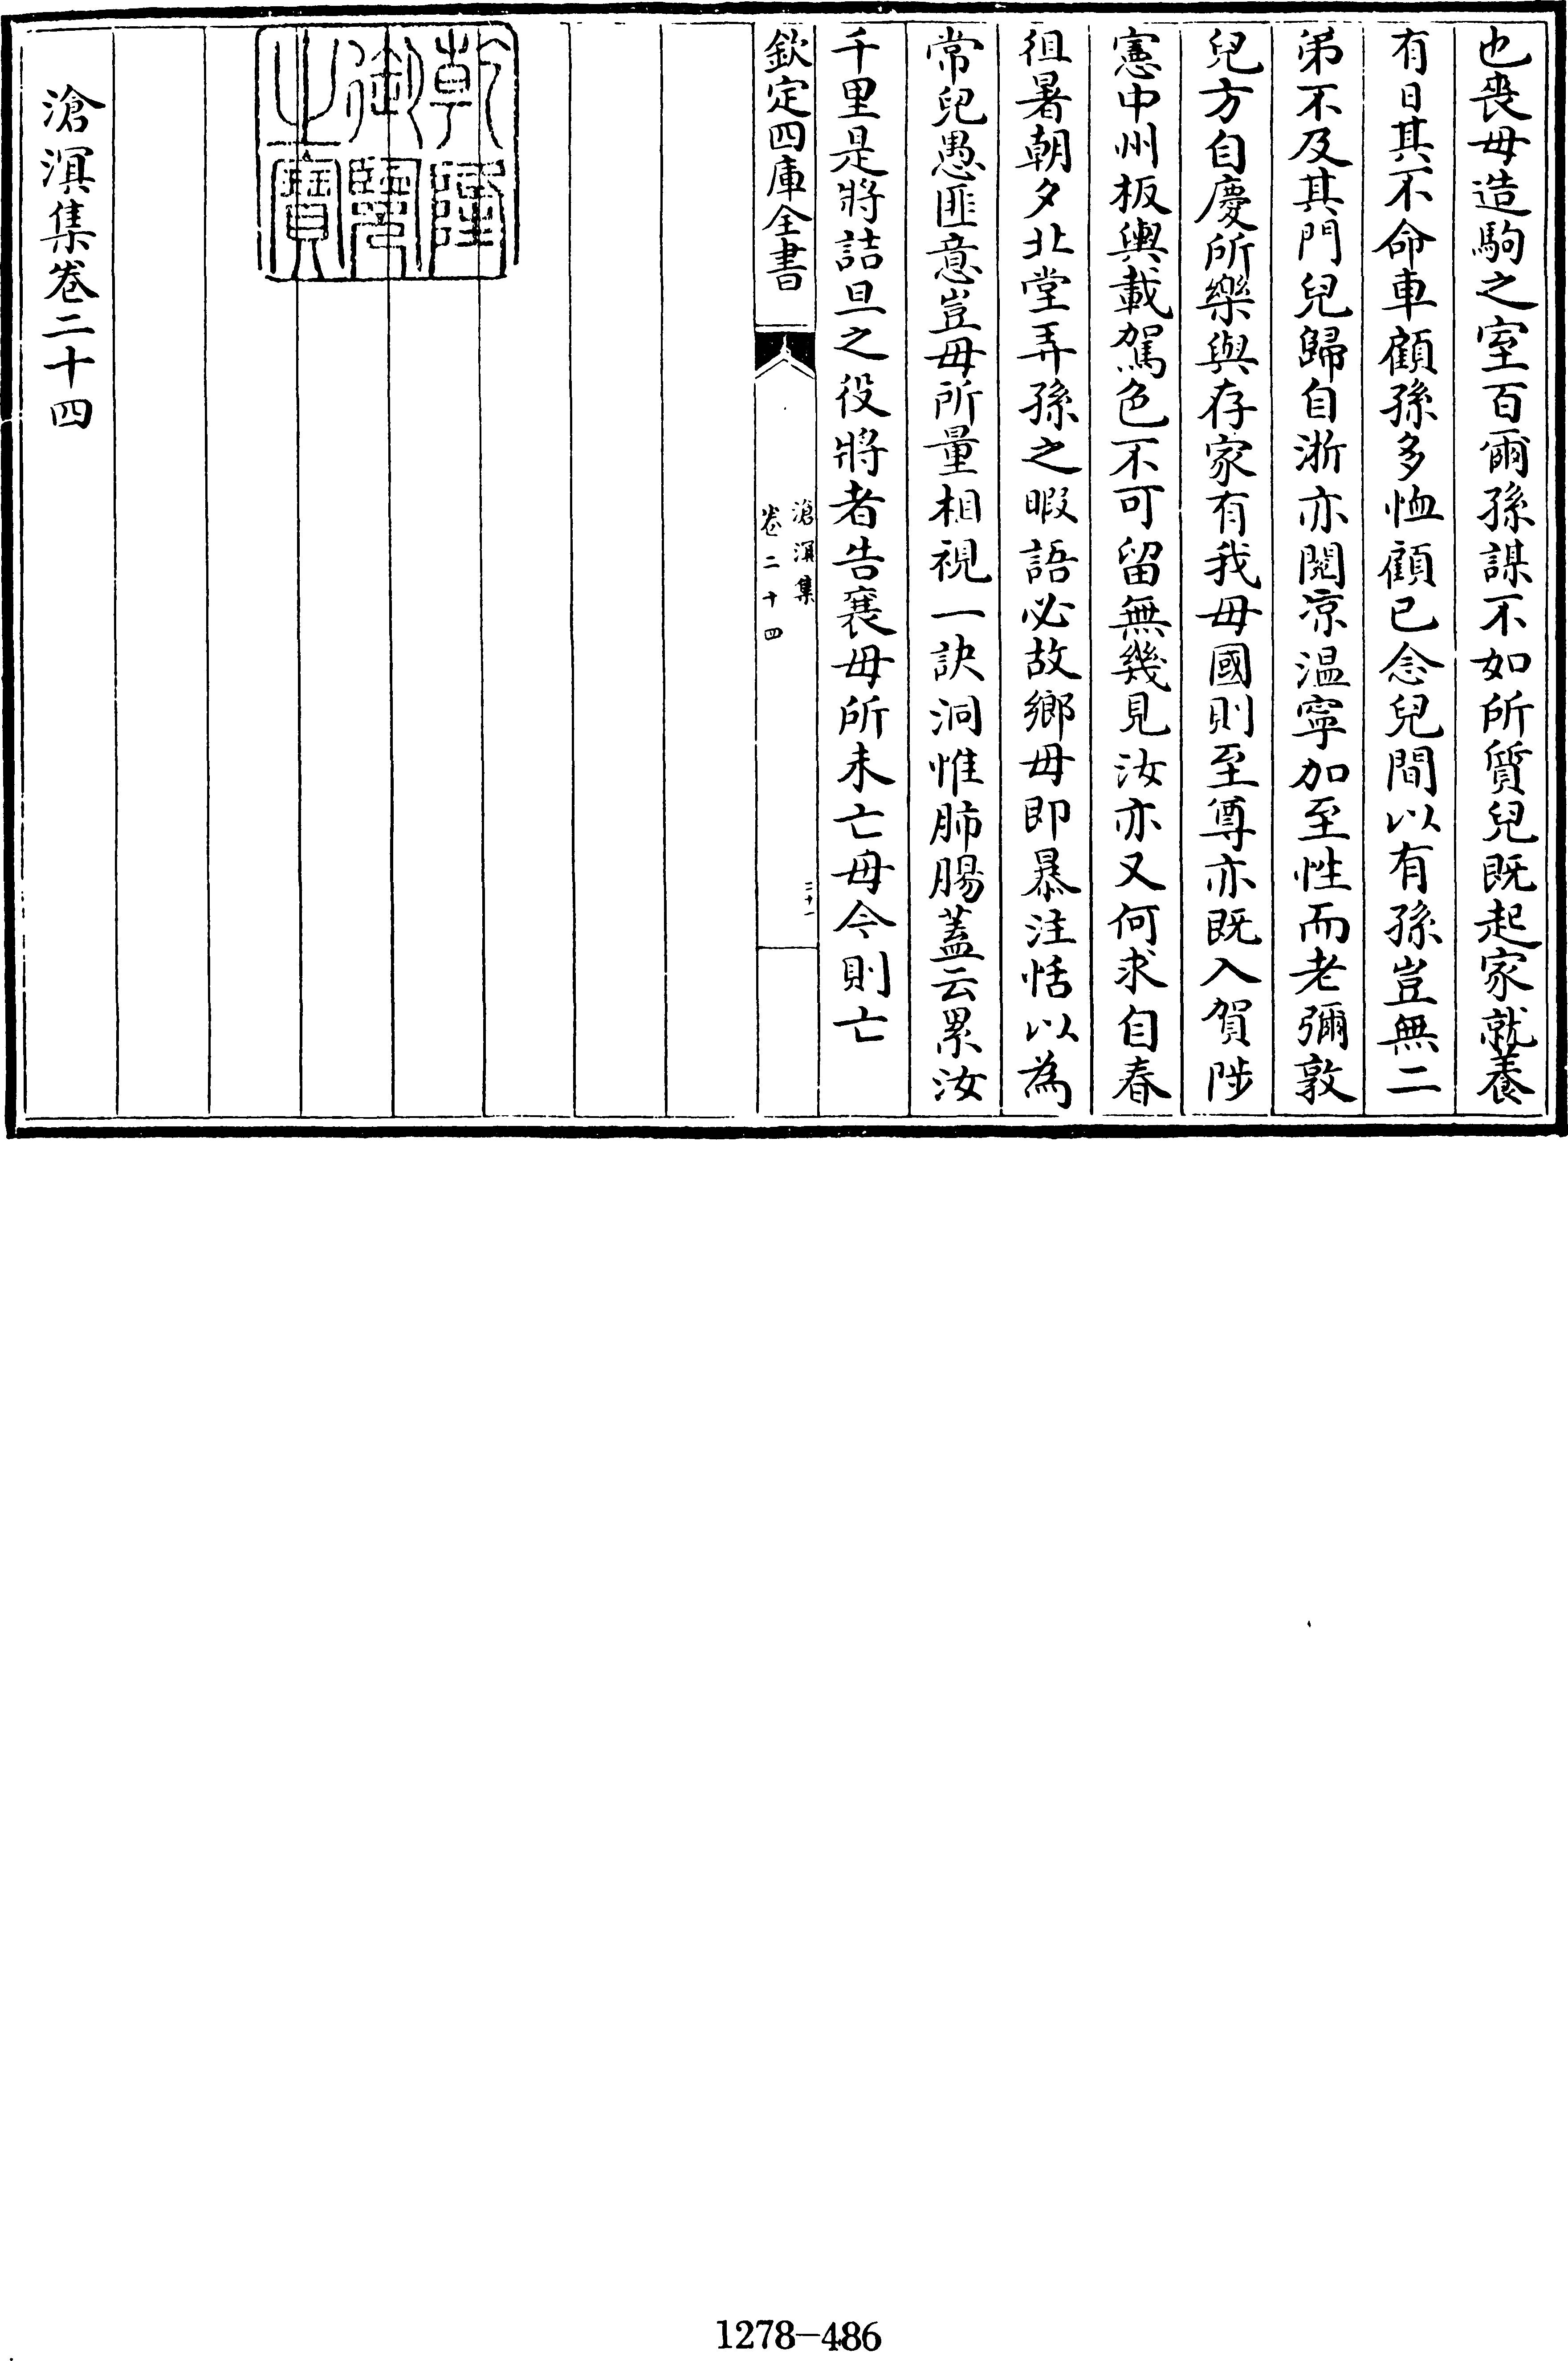 也喪毋造駒之室百爾孫謀不如所質兒既起家就養
有日其不命車顧孫多恤顧已念兒間以有孫豈無二
弟不及其門兒歸自浙亦閱凉温寧加至性而老彌敦
兒方自慶所樂與存家有我毋國則至尊亦既入賀陟
憲中州板輿載駕色不可留無幾見汝亦又何求自春
徂暑朝夕北堂弄孫之暇語必故鄉毋即暴注恬以為
常兒愚匪意豈毋所量相視一訣洞惟肺腸蓋云累汝
千里是將詰旦之役將者告襄毋所未亡毋今則亡
欽定四庫全書
滄溟集
卷二十四
三十一
乾隆御覽之寶
滄溟集卷二十四
1278-486